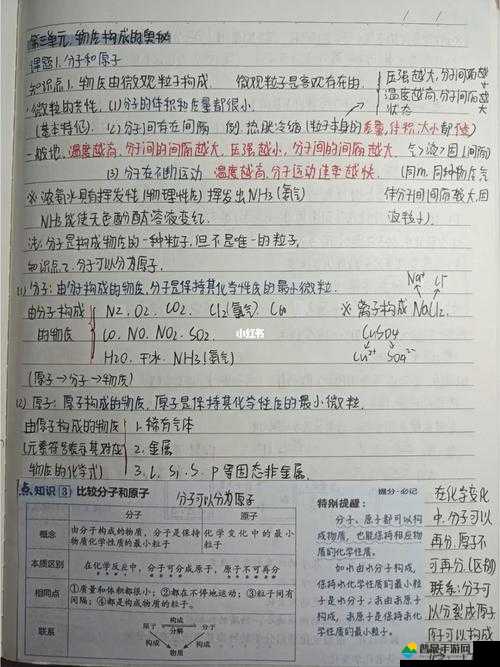 第三单元.物质构成的奥秘
课题1.分子和原子
知识点1.物质由微观粒子构成 微观粒子是客观存在的.
压强越大,分子间隔越小
温度越高,分子间隔越大
状态
微粒的共性.(1)分子的体积和质量都很小.
(基本特征). (2)分子间有间隔 例.热胀冷缩(粒子本身的质量,体积,大小都不变)
一般地.温度越高,分子间的间隔越大,压强越小,分子间的间隔越大. 气>液>固(间隔)
(3)分子在不断运动 温度越高,分子运动速率越快. (同m.同种物质气
※浓氨水具有挥发性(物理性质)挥发出NH3(氨气) 体分子间间隔较大,因
NH3能使无色酚酞溶液变红.
注:分子是构成物质的一种粒子,但不是唯一的粒子.
知识点2.分子可以分为原子.
(1)分子:由分子构成的物质,分子是保持其化学性质的最小微粒.
Na+ Cl-
由分子构成 N2.O2.CO2.Cl2(氯气).C60 ※离子构成 NaCl2.
的物质 CO.NO.NO2.SO2. CuSO4
H2O.干冰.NH3(氨气) Cu2+ SO42-
(原子→分子→物质)
(2)原子:原子构成的物质,原子是保持其化学性质的最小微粒.
由原子构成的物质 1.稀有气体
(元素符号表示其对应 2.金属
物质的化学式) 3.C.Si.S.P等固态非金属.
点 知识 3 比较分子和原子 分子可以分为原子
提分·必记
分子 原子
概念 由分子构成的物质,分子是保持物质化学性质的最小粒子 化学变化中的最小粒子
本质区别 在化学反应中,分子可分成原子,原子不可再分
相同点 ①质量和体积都很小;②都在不停地运动;③粒子间有间隔;④都是构成物质的粒子。
联系 原子 构成 分解 分子 构成 构成 物质
特别提醒:
分子、原子都可以构
成物质,也能保持相应物
质的化学性质。
如水由水分子构成,
保持水化学性质的最小粒
子是水分子;汞由汞原子
构成,汞原子是保持汞化
学性质的最小粒子。
在化学变化
中.分子可以
再分.原子不
可再分.(区别)
联系:分子可
以分裂成原子
原子可以构成
小红书
普晶手游网